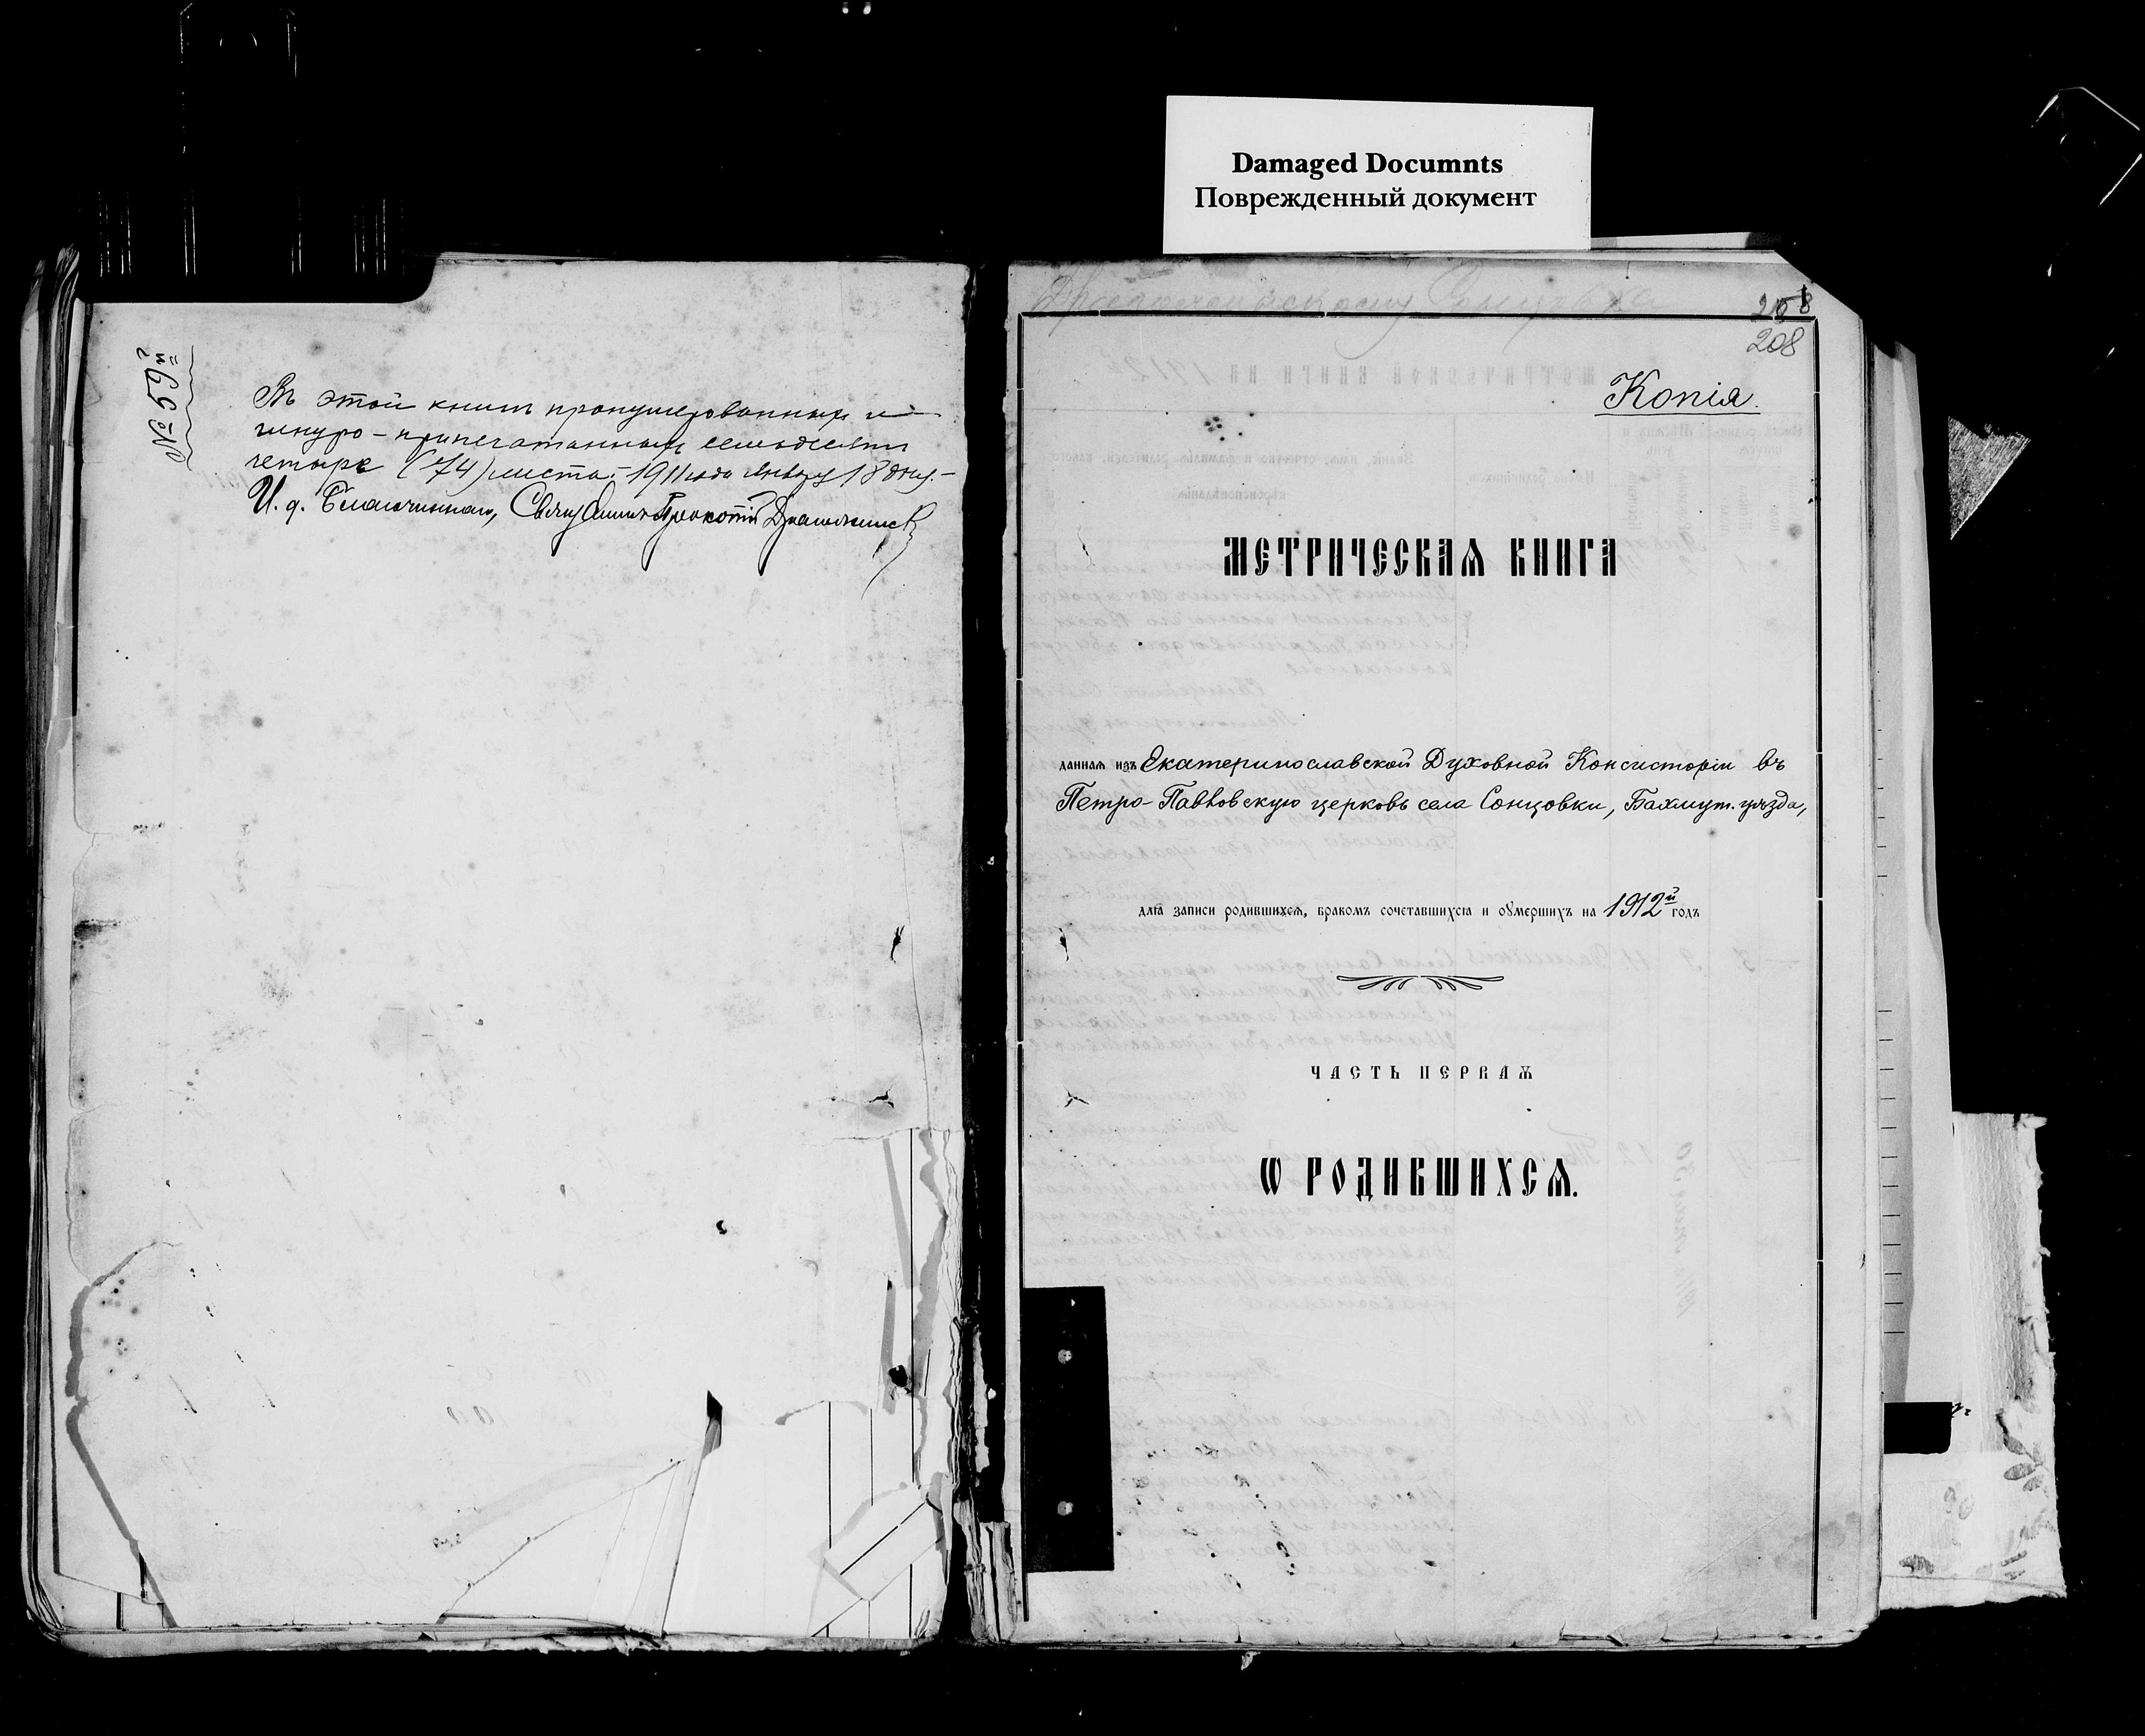 Damaged Documnts
Поврежденный документ
№ 59й
Въ этой книгѣ пронумерованныхъ и
шнуро-припечатанныхъ семьдесятъ
четыре (74) листа. 1911 года января 18 дня.
И. д. Благочиннаго, Священникъ Прокопій
208
208
Копія.
МЕТРИЧЕСКАѦ КНИГА
даннаѧ изъ Екатеринославской Духовной Консисторіи въ
Петро-Павловскую церковь села Сонцовки, Бахмут. уѣзда,
длѧ записи родившихсѧ, бракомъ сочетавшихсѧ и оумершихъ на 1912й годъ
ЧАСТЬ ПЕРВАѦ
Ѡ РОДИВШИХСѦ.